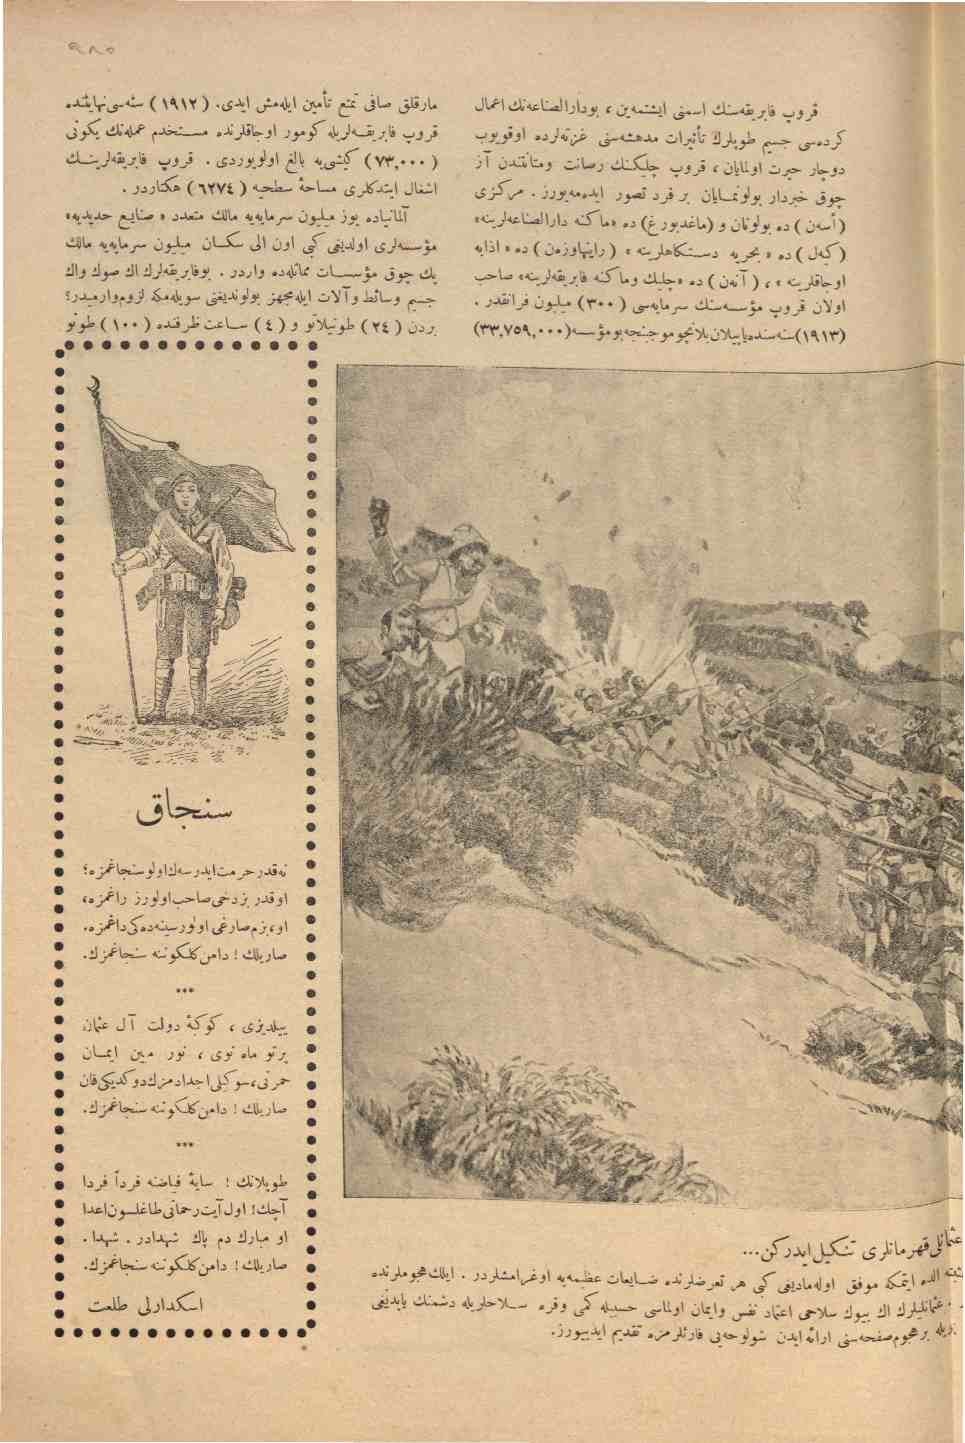 ٩٨٥
قروپ فابريقه‌سنك اسمنى ايشتمه‌ين ، بودارالصناعه‌نك اعمال
كرده‌سى جسيم طوپلرك تأثيرات مدهشه‌سنى غزته‌لرده اوقويوب
دوچار حيرت اولمايان ، قروپ چليكنك رصانت ومتانتندن آز
چوق خبردار بولونمـايان بر فرد تصور ايده‌مه‌يورز . مركزى
(أسه‌ن) ده بولونان و (ماغده‌بورغ) ده «ماكنه دارالصناعه‌لرينه»
(كيه‌ل) ده « بحريه دستكاهلرينه » ( ) ده « اذابه
اوجاقلرينه » ، ( آنه‌ن ) ده «چليك وماكنه فابريقه‌لرينه» صاحب
اولان قروپ مؤسسه‌سنك سرمايه‌سى (٣٠٠) ميليون فرانقدر .
(١٩١٣) سنه‌سنده‌ياپيلان‌بلانچو موجبنجه‌بومؤسسه(٣٣,٧٥٩,٠٠٠)
مارقلق صافى تمتع تأمين ايله‌مش ايدى. ( ١٩١٢ ) سنه‌سى‌نهايتنده
قروپ فابريقـه‌لريله كومور اوجاقلرنده مستخدم عمله‌نك يكونى
( ٧٣,٠٠٠ ) كيشى‌يه بالغ اولويوردى . قروپ فابريقه‌لرينـك
اشغال ايتدكلرى مساحۀ سطحيه ( ٦٢٧٤ ) هكتاردر .
آلمانياده يوز ميليون سرمايه‌يه مالك متعدد « صنايع حديديه»
مؤسسه‌لرى اولديغى كبى اون الى سكسان ميليون سرمايه‌يه مالك
پك چوق مؤسسات مماثله‌ده واردر. بوفابريقه‌لرك اك صوك واك
جسيم وسائط وآلات ايله‌مجهز بولونديغنى سويله‌مكه لزوم‌وارميدر؟
بردن ( ٢٤ ) طونيلاتو و (٤) ساعت ظرفنده ( ١٠٠ ) طونو
سنجاق
نه‌قدر حرمت‌ايدرسه‌ك‌اولو سنجاغمزه؛
اوقدر بز دخى صاحب اولورز راغمزه،
او، بزم صارغى اولور سينه‌ده‌كى داغمزه.
صاريلك ! دامن كلكوننه سنجاغمزك.
***
ييلديزى ، كوكبۀ دولت آل عثمان
پرتو ماه نوى ، نور مبين ايمـان
حمرتى،سوكيلى اجدادمزك‌دوكديكى‌قان
صاريلك ! دامن كلكوننه سنجاغمزك.
***
طوپلانك ! سايۀ فياضنه فرداً فردا
آچك! اول آيت رحمانى‌طاغلسون‌اعدا
او مبارك دم پاك شهدادر . شهدا .
صاريلك ! دامن كلكوننه سنجاغمزك.
اسكدارلى طلعت
عثمانلى قهرمانلرى تشكيل ايدركن...
الده ايتمكه موفق اوله‌ماديغى كبى هر تعرضلرنده ضـايعات عظيمه‌يه اوغرامشلردر . ايلك هجوملرنده
عثمانليلرك اك بيوك سلاحى اعتماد نفس وايمان اولماسى حسبيله كمى وقره سـلاحلريله دشمنك ياپديغى
برهجوم صفحه‌سنى ارائه ايدن شولوحه‌يى قارئلرمزه تقديم ايدييورز.